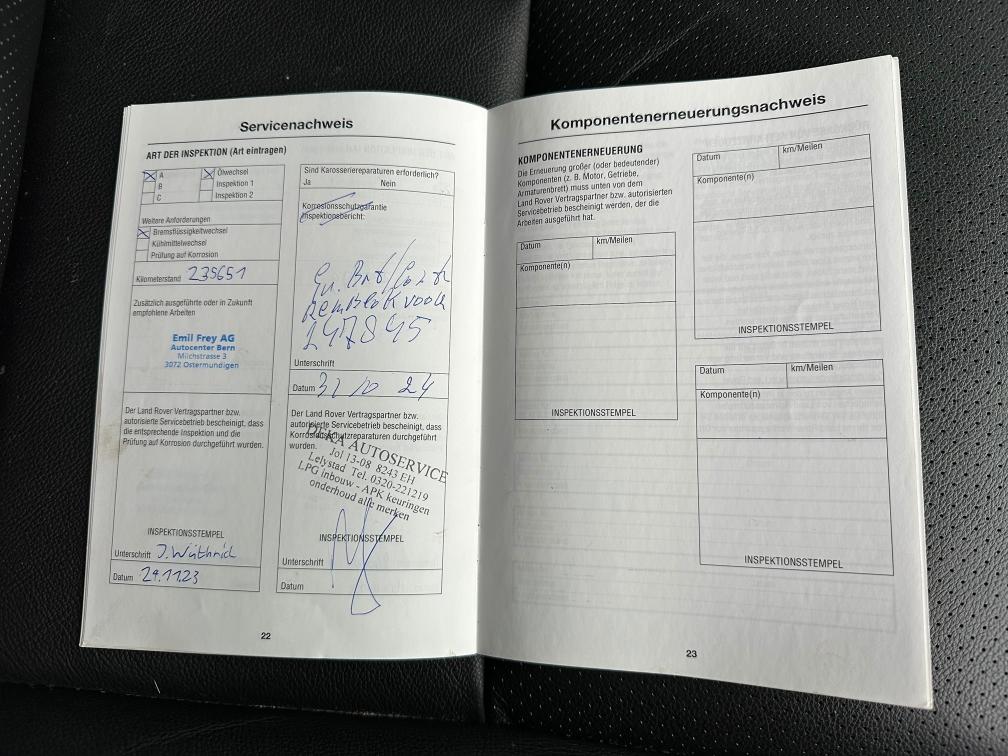 Servicenachweis
ART DER INSPEKTION (Art eintragen)
A
B
C
Ölwechsel
Inspektion 1
Inspektion 2
Weitere Anforderungen
Bremsflüssigkeitwechsel
Kühlmittelwechsel
Prüfung auf Korrosion
Kilometerstand 235651
Zusätzlich ausgeführte oder in Zukunft
empfohlene Arbeiten
Emil Frey AG
Autocenter Bern
Milchstrasse 3
3072 Ostermundigen
Der Land Rover Vertragspartner bzw.
autorisierte Servicebetrieb bescheinigt, dass
die entsprechende Inspektion und die
Prüfung auf Korrosion durchgeführt wurden.
INSPEKTIONSSTEMPEL
Unterschrift J. Wüthrich
Datum 29.11.23
Sind Karosseriereparaturen erforderlich?
Ja Nein
Korrosionsschutzgarantie
Inspektionsbericht:
Gr. Brt/
247845
Unterschrift
Datum 31 10 24
Der Land Rover Vertragspartner bzw.
autorisierte Servicebetrieb bescheinigt, dass
Korrosionsschutzreparaturen durchgeführt
wurden.
DEKA AUTOSERVICE
Jol 13-08 8243 EH
Lelystad Tel. 0320-221219
LPG inbouw - APK keuringen
onderhoud alle merken
INSPEKTIONSSTEMPEL
Unterschrift
Datum
22
Komponentenerneuerungsnachweis
KOMPONENTENERNEUERUNG
Die Erneuerung großer (oder bedeutender)
Komponenten (z. B. Motor, Getriebe,
Armaturenbrett) muss unten von dem
Land Rover Vertragspartner bzw. autorisierten
Servicebetrieb bescheinigt werden, der die
Arbeiten ausgeführt hat.
Datum km/Meilen
Komponente(n)
INSPEKTIONSSTEMPEL
Datum km/Meilen
Komponente(n)
INSPEKTIONSSTEMPEL
Datum km/Meilen
Komponente(n)
INSPEKTIONSSTEMPEL
23